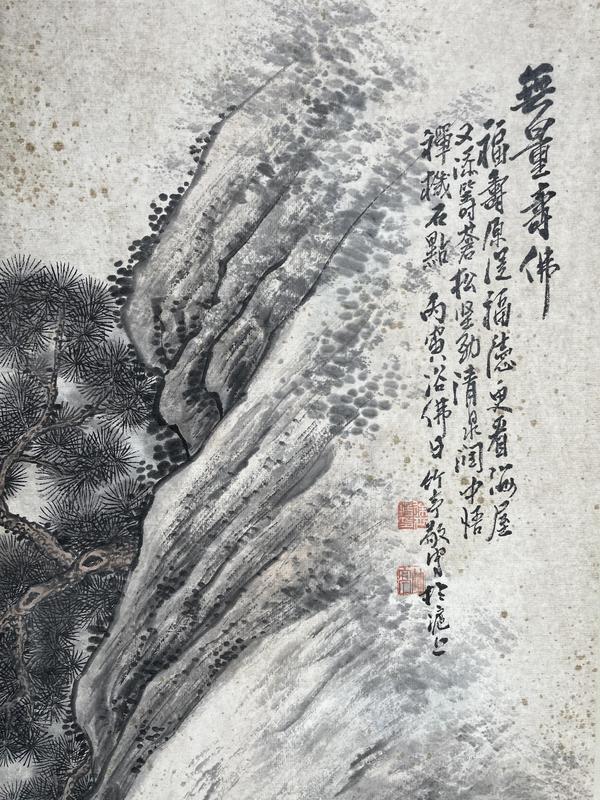 無量壽佛
福壽原從福德更看海屋
又添籌蒼松堅勁清泉潤中悟
禪機石點 丙寅浴佛日竹亭敬寫於滬上